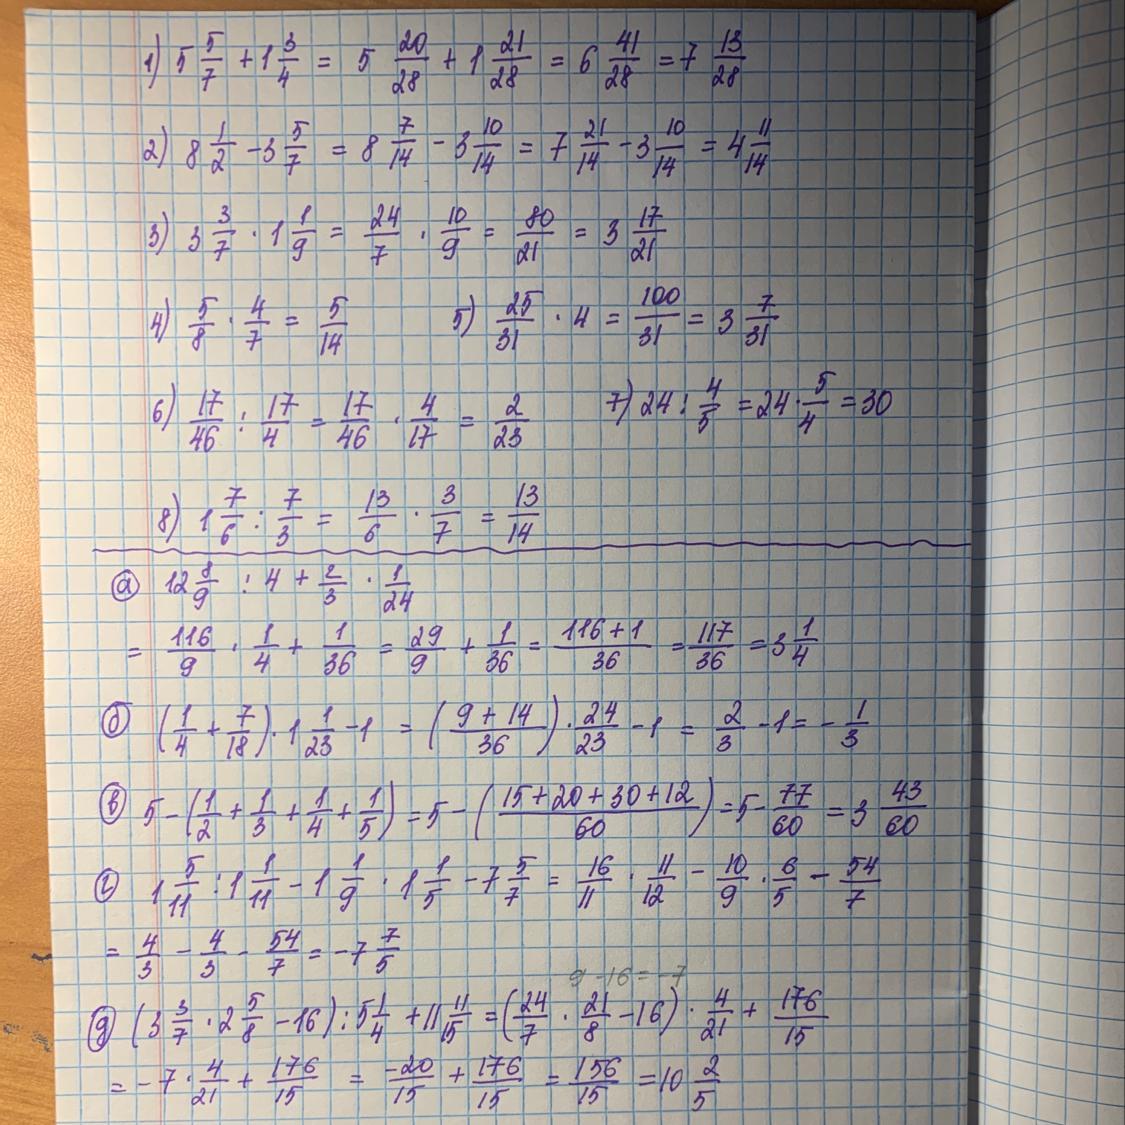 1) 5 5/7 + 1 3/4 = 5 20/28 + 1 21/28 = 6 41/28 = 7 13/28
2) 8 1/2 - 3 5/7 = 8 7/14 - 3 10/14 = 7 21/14 - 3 10/14 = 4 11/14
3) 3 3/7 · 1 1/9 = 24/7 · 10/9 = 80/21 = 3 17/21
4) 5/8 · 4/7 = 5/14 5) 25/31 · 4 = 100/31 = 3 7/31
6) 17/46 : 17/4 = 17/46 · 4/17 = 2/23 7) 24 : 4/5 = 24 · 5/4 = 30
8) 1 7/6 : 7/3 = 13/6 · 3/7 = 13/14
а) 12 8/9 : 4 + 2/3 · 1/24
= 116/9 · 1/4 + 1/36 = 29/9 + 1/36 = (116+1)/36 = 117/36 = 3 1/4
б) (1/4 + 7/18) · 1 1/23 - 1 = ((9+14)/36) · 24/23 - 1 = 2/3 - 1 = - 1/3
в) 5 - (1/2 + 1/3 + 1/4 + 1/5) = 5 - ((15+20+30+12)/60) = 5 - 77/60 = 3 43/60
г) 1 5/11 : 1 1/11 - 1 1/9 · 1 1/5 - 7 5/7 = 16/11 · 11/12 - 10/9 · 6/5 - 54/7
= 4/3 - 4/3 - 54/7 = -7 7/5
9 - 16 = -7
д) (3 3/7 · 2 5/8 - 16) : 5 1/4 + 11 11/15 = (24/7 · 21/8 - 16) · 4/21 + 176/15
= -7 · 4/21 + 176/15 = -20/15 + 176/15 = 156/15 = 10 2/5